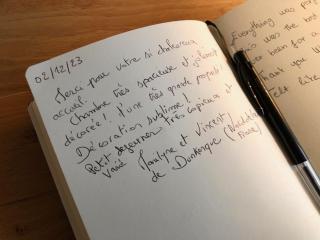 02/12/23
Merci pour votre si chaleureux
accueil.
Chambre très spacieuse et joliment
décorée! d'une très grande propreté!
Décoration sublime!
Petit déjeuner très copieux et
varié
Maralyne et Vincent
de Dunkerque
Everything was
was the
been for a
Thank you
felt like